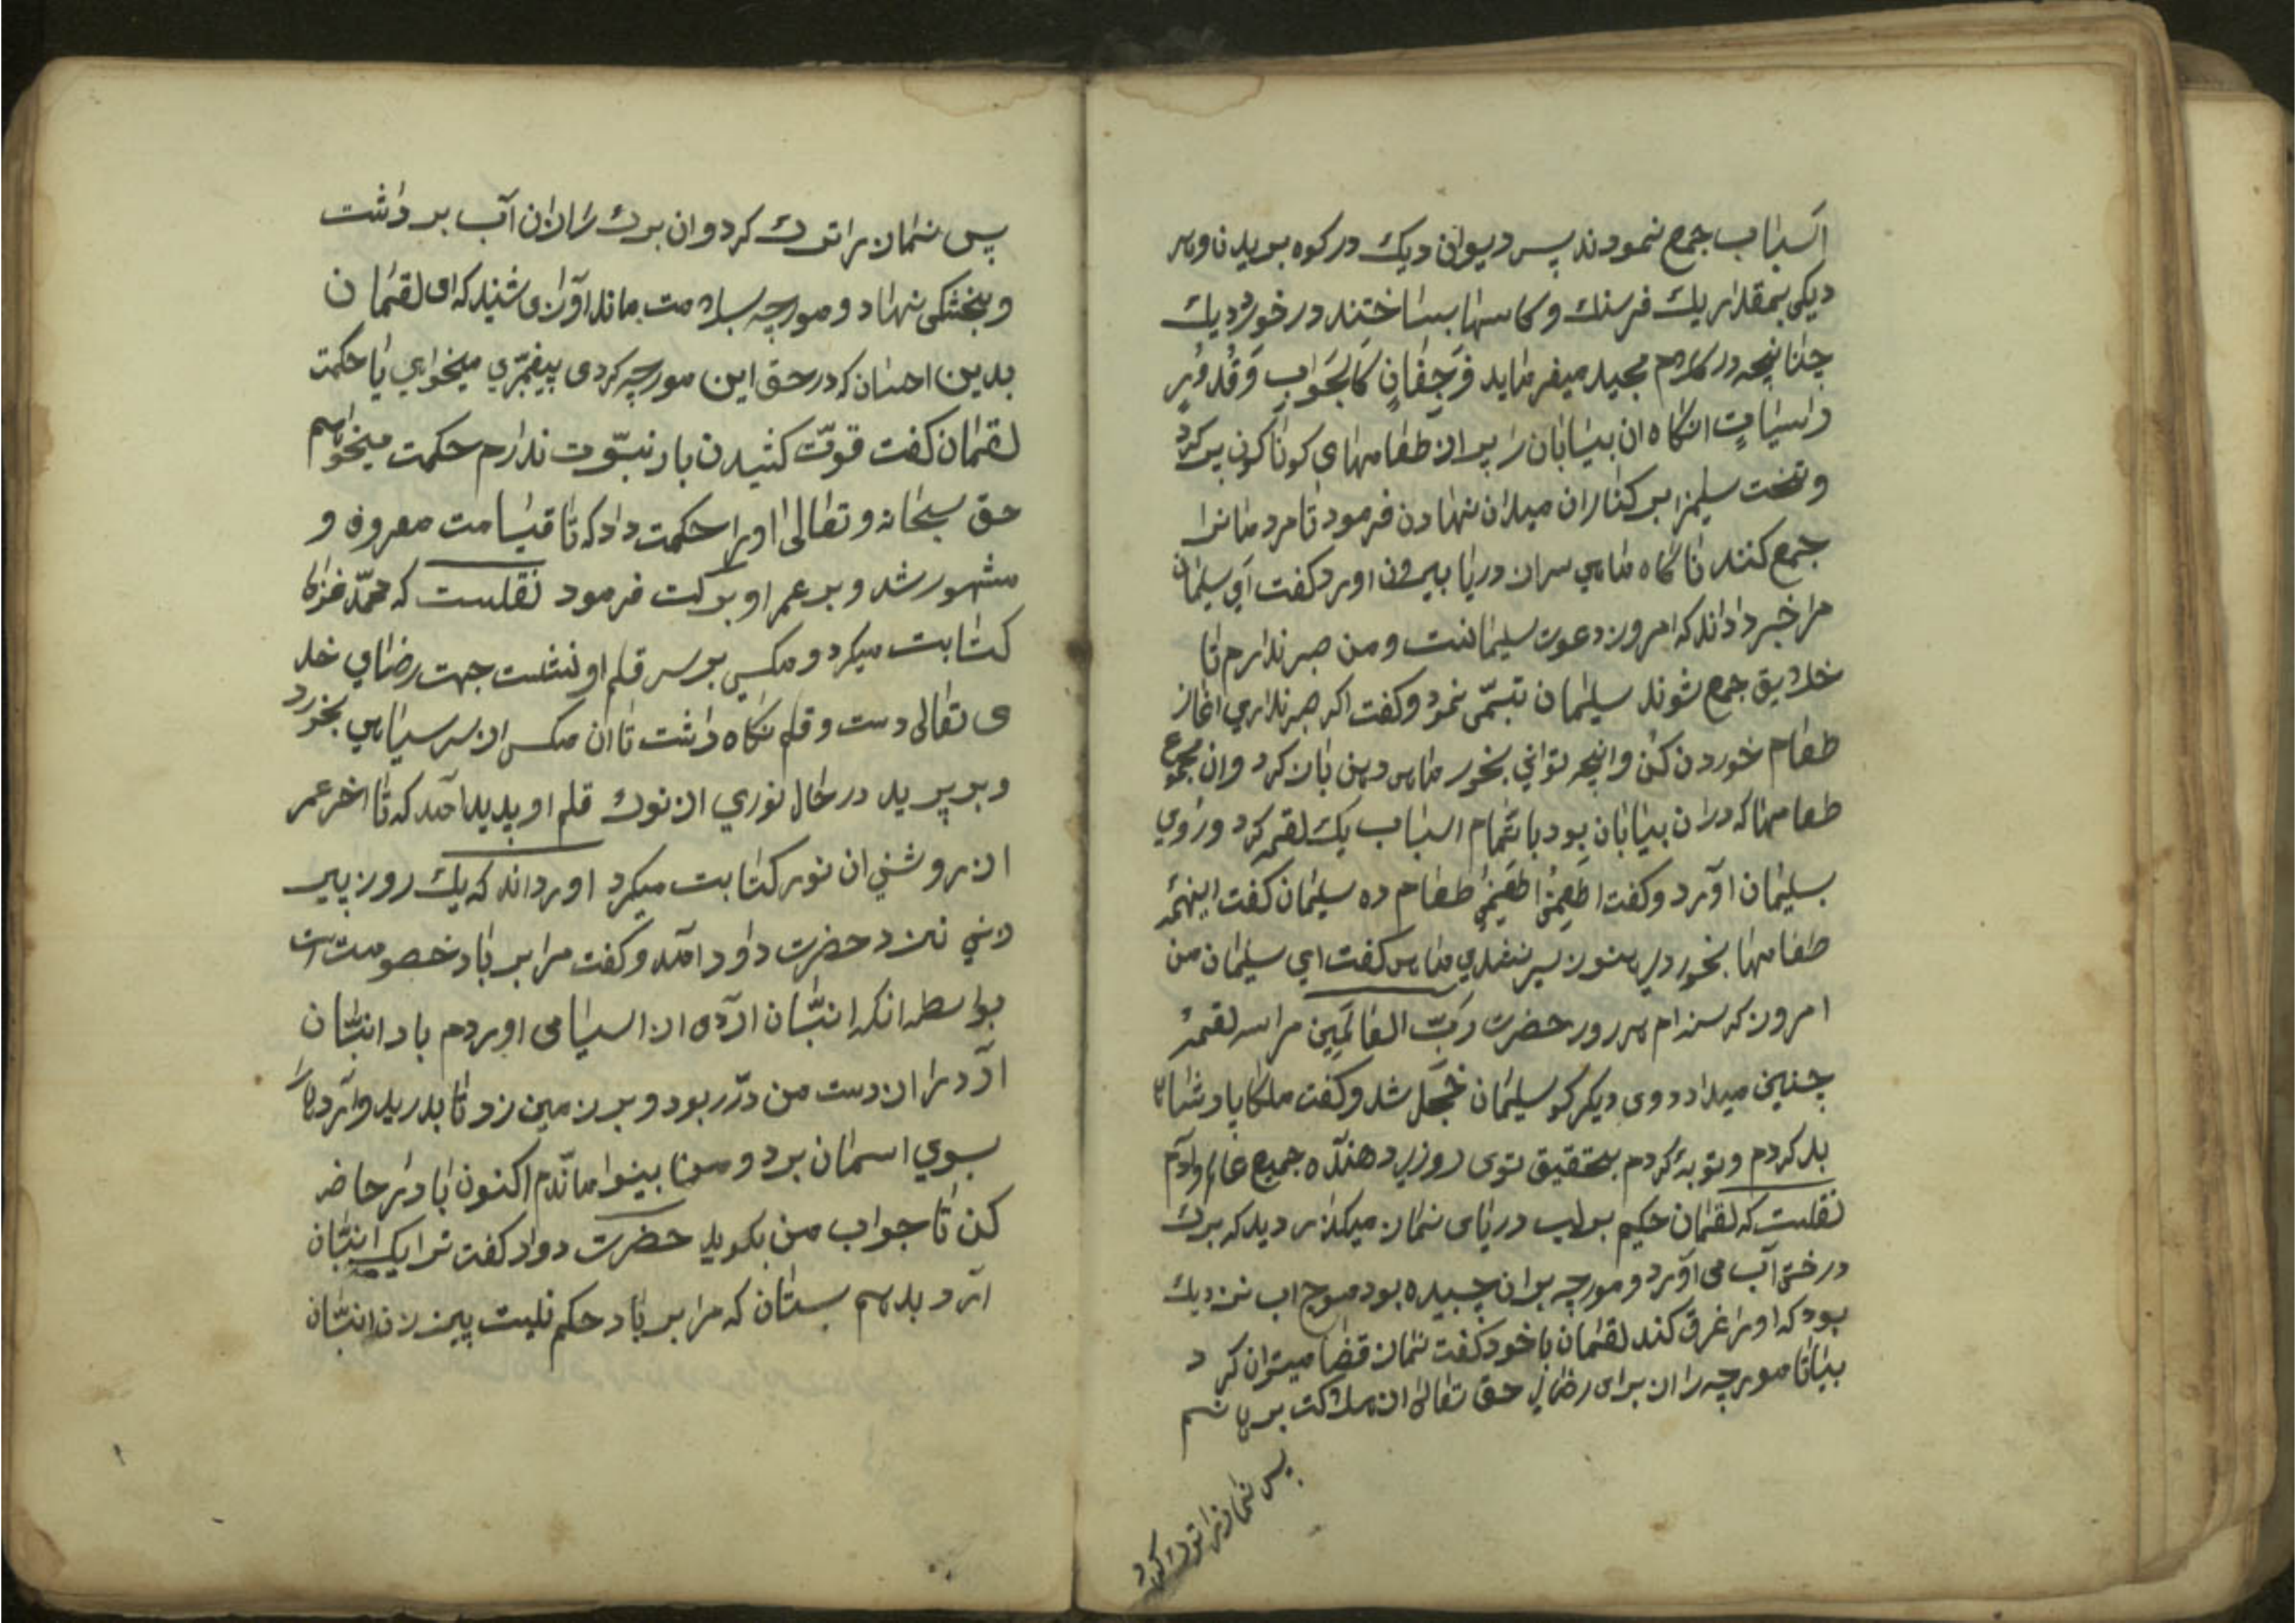 اسباب جمع نمودند پس دیوان دیک در کوه بریدن وهر
دیکی بمقدار یک فرسنک و کاسها بساختند در خورد دیک
چنانچه در کلام مجید میفرماید وَجِفَانٍ کَالْجَوَابِ وَقُدُورٍ
راسیاتٍ انکاه ان بیابان را پر از طعامهای کوناکون پر کرد
و تخت سلیمنرا بر کنار ان میدان نهادن فرمود تا مردمانرا
جمع کنند ناکاه ماهی سر از دریا بیرون اورد کفت ای سلیمان
مرا خبر دادند که امروز دعوت سلیمانست ومن صبر ندارم تا
خلایق جمع شوند سلیمان تبسّمی نمود وکفت اکر صبر نداری اغاز
طعام خوردن کن وانچه توانی بخور ماهی دهن باز کرد وان مجموع
طعامها که در ان بیابان بود با تمام اسباب یک لقمه کرد وروی
بسلیمان اورد وکفت اطعمنی اطعمنی طعام ده سلیمان کفت اینهمه
طعامها بخوردی هنوز سیر نشدی ماهی کفت ای سلیمان من
امروز کرسنه ام هر روز حضرت رَبّ العَالَمِین مرا سه لقمه
چنین میداد دوی دیکر کو سلیمان خجل شد وکفت ملکا پادشاها
بد کردم وتوبه کردم بتحقیق توی روزی دهنده جمیع عالم وآدم
نقلست که لقمان حکیم بر لب دریای نماز میکذارد دید که برک
درختی آب می آورد و مورچه بر ان چسپیده بود موج اب نزدیک
بود که اورا غرق کند لقمان با خود کفت نماز قضا میتوان کرد
بیا تا مورچه را از برای رضای حق تعالی از هلاکت برهانم
پس نماز را ترک کرد
پس نماز را ترک کرد وان برک را از ان آب برداشت
وبخشکی نهاد و مورچه بسلامت بماند اوازی شنید که ای لقمان
بدین احسان که در حق این مورچه کردی پیغمبری میخواهی یا حکمت
لقمان کفت قوّت کشیدن بار نبوّت ندارم حکمت میخواهم
حق سبحانه وتعالی اورا حکمت داد که تا قیامت معروف و
مشهور شد و بر عمر او برکت فرمود نقلست که محمّد غزالی
کتابت میکرد و مکسی بر سر قلم او نشست جهت رضای خدا
ی تعالی دست و قلم نکاه داشت تا ان مکس از سر سیاهی بخورد
وبر پرید در حال نوری از نوک قلم او پدید امد که تا اخر عمر
از روشنی ان نور کتابت میکرد اورده اند که یک روز پیر
زنی نزد حضرت داود امد وکفت مرا بر باد خصومت است
بواسطه انکه انبّان آرده از اسیا می اوردم باد انبّان
آرد را از دست من در ربود و بر زمین زد تا بدرید وآرد را
بسوی اسمان برد و من بینوا ماندم اکنون باد را حاضر
کن تا جواب من بکوید حضرت داود کفت ترا یک انبّان
ارد بدهم بستان که مرا بر باد حکم نیست پیرزن انبّان